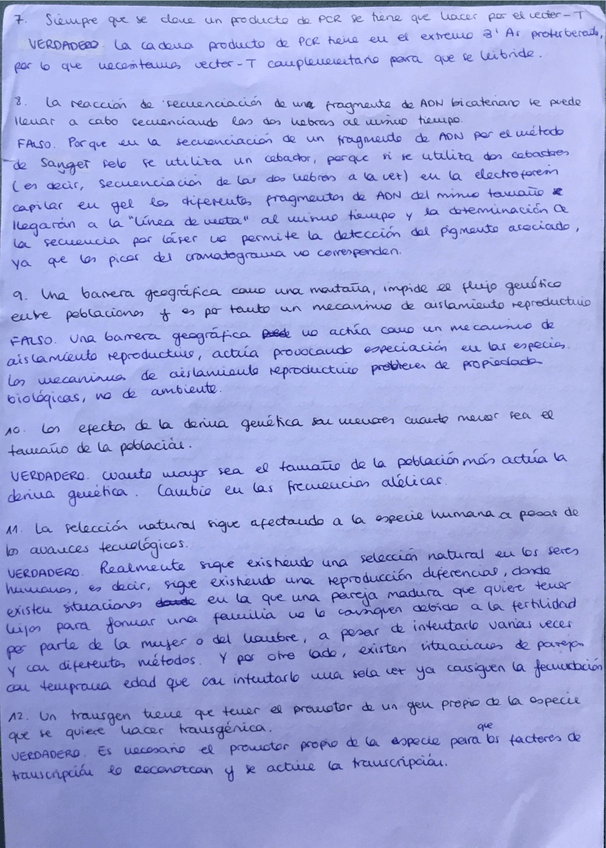 7. Siempre que se clone un producto de PCR se tiene que hacer por el vector-T
VERDADERO La cadena producto de PCR tiene en el extremo 3' As protuberads,
por lo que necesitamos vector-T complementario para que se hibride.
8. La reacción de secuenciación de una fragmento de ADN bicatenario se puede
llevar a cabo secuenciando las dos hebras al mismo tiempo.
FALSO. Porque en la secuenciación de un fragmento de ADN por el método
de Sanger solo se utiliza un cebador, porque si se utiliza dos cebadores
(es decir, secuenciación de las dos hebras a la vez) en la electroforesis
capilar en gel los diferentes fragmentos de ADN del mismo tamaño
llegarán a la "línea de meta" al mismo tiempo y la determinación de
la secuencia por láser no permite la detección del pigmento asociado,
ya que los picos del cromatograma no corresponden.
9. Una barrera geográfica como una montaña, impide el flujo genético
entre poblaciones y es por tanto un mecanismo de aislamiento reproductivo
FALSO. Una barrera geográfica no actúa como un mecanismo de
aislamiento reproductivo, actúa provocando especiación en las especies.
Los mecanismos de aislamiento reproductivo de propiedada
biológicas, no de ambiente.
10. Los efectos de la deriva genética son menores cuanto menor sea el
tamaño de la población.
VERDADERO. Cuanto mayor sea el tamaño de la población más actúa la
deriva genética. Cambio en las frecuencias alélicas.
11. La selección natural sigue afectando a la especie humana a pesar de
los avances tecnológicos.
VERDADERO. Realmente sigue existiendo una selección natural en los seres
humanos, es decir, sigue existiendo una reproducción diferencias, donde
existen situaciones en la que una pareja madura que quiere tener
hijos para formar una familia no lo consiguen debido a la fertilidad
por parte de la mujer o del hombre, a pesar de intentarlo varias veces
y con diferentes métodos. Y por otro lado, existen situaciones de parejas
con temprana edad que con intentarlo una sola vez ya consiguen la fecundación
12. Un transgen tiene que tener el promotor de un gen propio de la especie
que se quiere hacer transgénica.
VERDADERO. Es necesario el promotor propio de la especie para que los factores de
transcripción lo reconozcan y se active la transcripción.